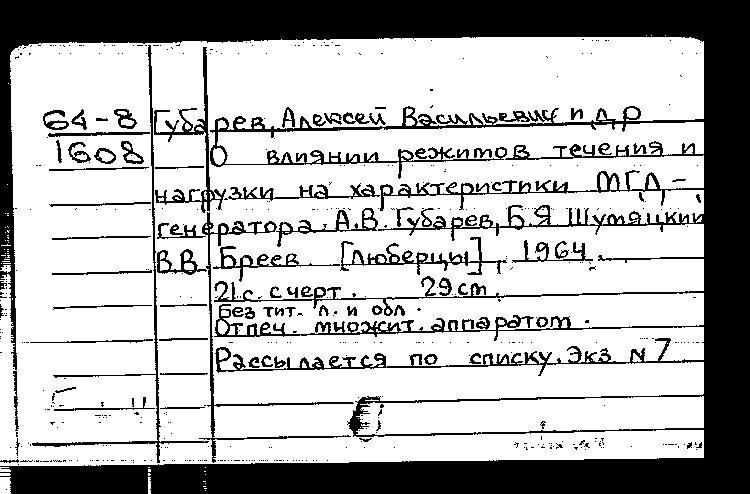 64-8 Губарев, Алексей Васильевич и др
1608 О влиянии режимов течения и
нагрузки на характеристики МГД-
генератора. А.В. Губарев, Б.Я Шумяцкий
В.В. Бреев. [Люберцы], 1964.
21 с. с черт. 29 см.
Без тит. л. и обл.
Отпеч. множит. аппаратом.
Рассылается по списку. Экз N 7